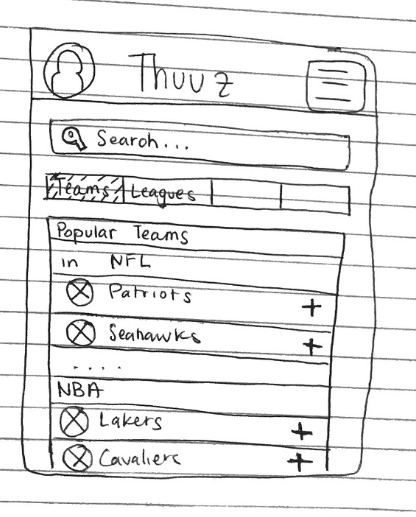 Thuuz
Search...
Teams Leagues
Popular Teams
in NFL
Patriots +
Seahawks +
....
NBA
Lakers +
Cavaliers +